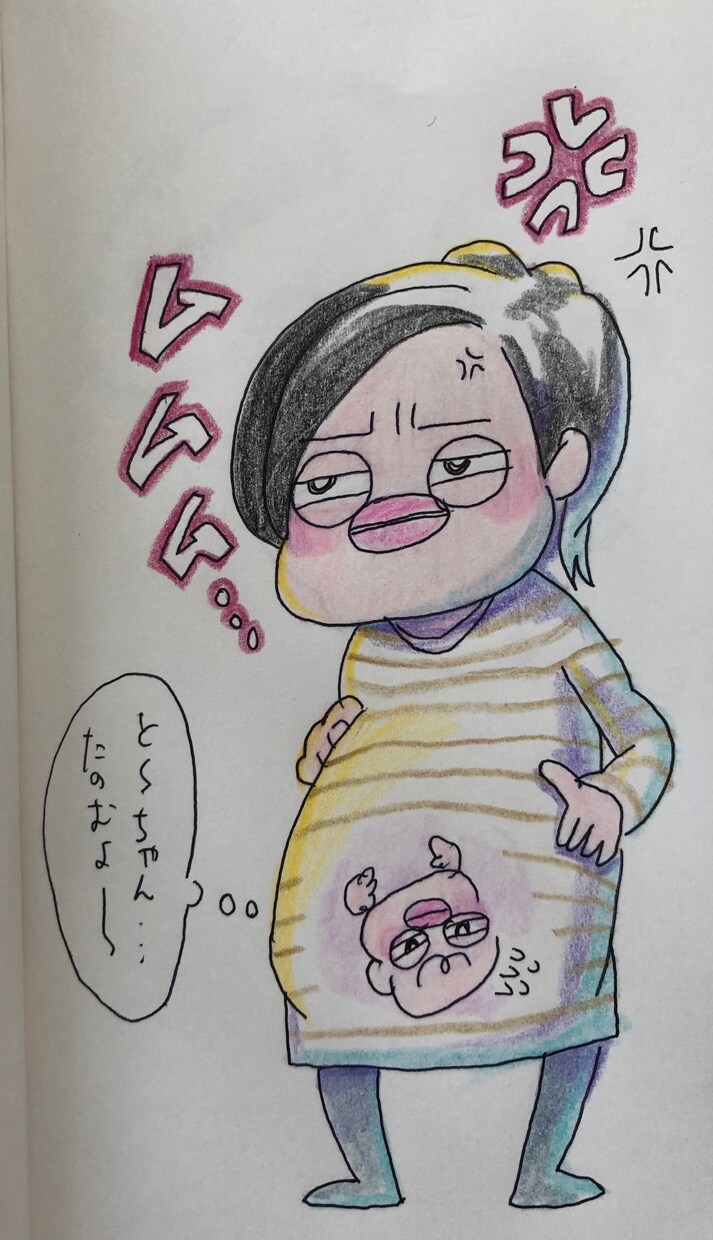 ムムム...
と〜ちゃん...
たのむよ〜